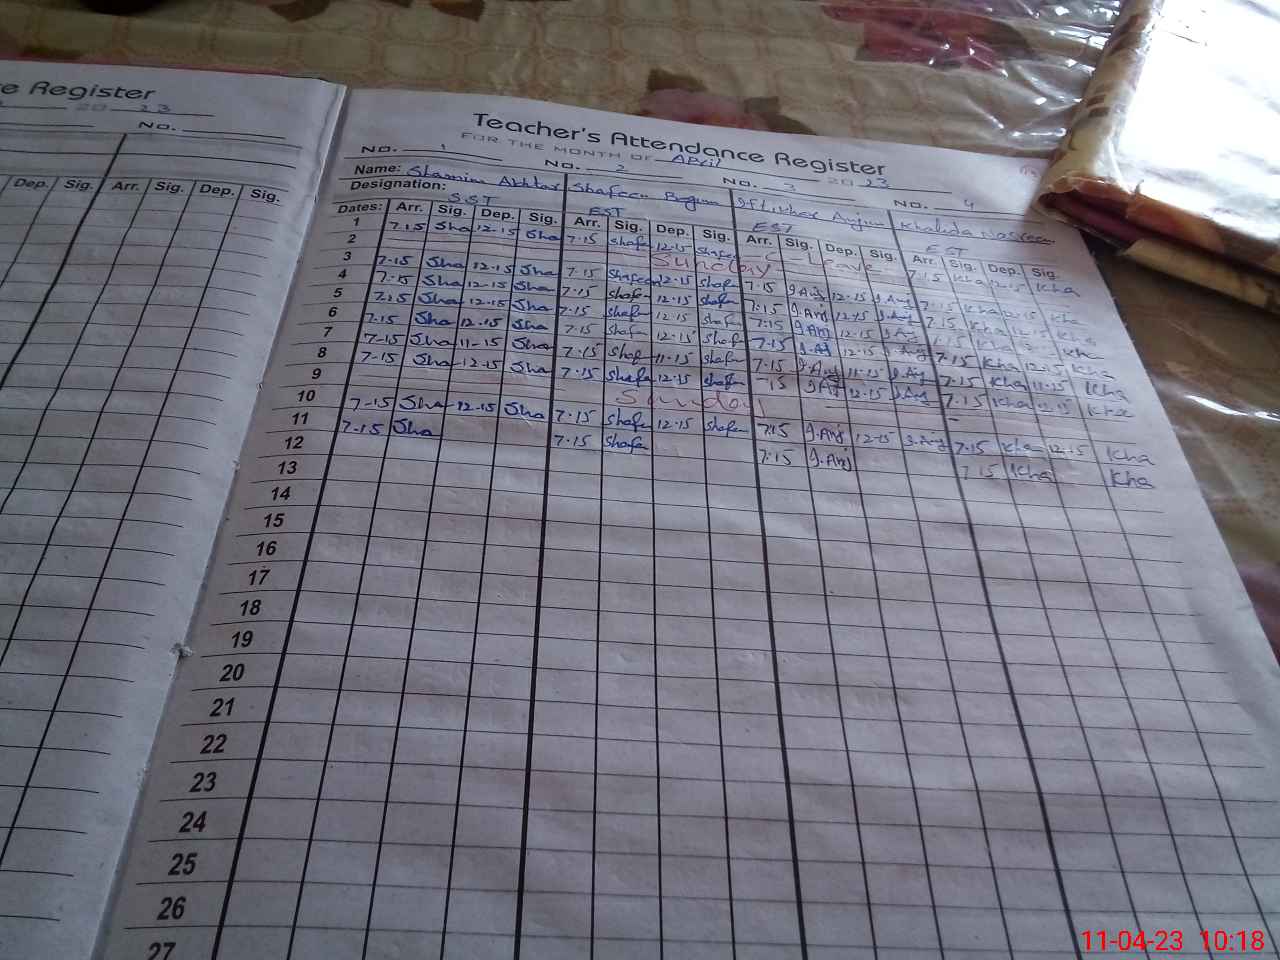 ce Register
20 23
No.
Dep. Sig. Arr. Sig. Dep. Sig.
Teacher's Attendance Register
FOR THE MONTH OF April 20 23
No. 1 No. 2 No. 3 No. 4
Name: Shamim Akhtar Shafeeq Begum Iftikhar Anjum Khalida Nasreen
Designation: SST EST EST EST
Dates: Arr. Sig. Dep. Sig. Arr. Sig. Dep. Sig. Arr. Sig. Dep. Sig. Arr. Sig. Dep. Sig.
1 7.15 Sha 12.15 Sha 7.15 shafee 12.15 shafee C. Leave 7.15 Kha 12.15 Kha
2 Sunday
3 7.15 Sha 12.15 Sha 7.15 Shafee 12.15 shafee 7.15 I.Anj 12.15 I.Anj 7.15 Kha 12.15 Kha
4 7.15 Sha 12.15 Sha 7.15 shafee 12.15 shafee 7.15 I.Anj 12.15 I.Anj 7.15 Kha 12.15 Kha
5 7.15 Sha 12.15 Sha 7.15 shafee 12.15 shafee 7.15 I.Anj 12.15 I.Anj 7.15 Kha Kha
6 7.15 Sha 12.15 Sha 7.15 shafee 12.15 shafee 7.15 I.Anj 12.15 I.Anj 7.15 Kha 12.15 Kha
7 7.15 Sha 11.15 Sha 7.15 shafee 11.15 shafee 7.15 I.Anj 11.15 I.Anj 7.15 Kha 11.15 Kha
8 7.15 Sha 12.15 Sha 7.15 shafee 12.15 shafee 7.15 I.Anj 12.15 I.Anj 7.15 Kha 12.15 Kha
9 Sunday
10 7.15 Sha 12.15 Sha 7.15 shafee 12.15 shafee 7.15 I.Anj 12.15 I.Anj 7.15 Kha 12.15 Kha
11 7.15 Sha 7.15 shafee 7.15 I.Anj 7.15 Kha Kha
12
13
14
15
16
17
18
19
20
21
22
23
24
25
26
27
11-04-23 10:18